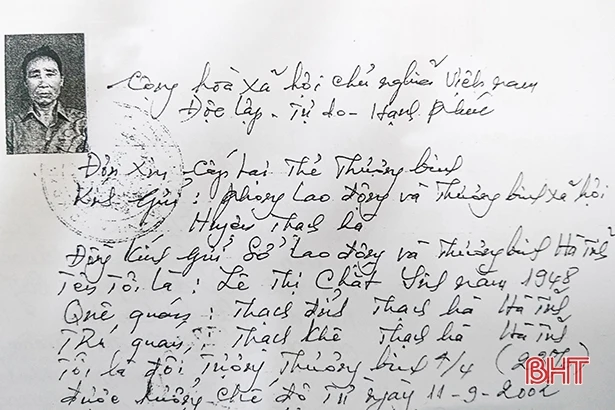 Cộng hòa xã hội chủ nghĩa Việt nam
Độc lập - Tự do - Hạnh phúc
Đơn xin cấp lại thẻ Thương binh
Kính gửi : phòng lao động và Thương binh xã hội
Huyện Thạch hà
Đồng kính gửi Sở lao động và Thương binh Hà Tĩnh
Tên tôi là : Lê Thị Chất Sinh năm 1948
Quê quán : Thạch đỉnh Thạch hà Hà Tĩnh
Trú quán : Thạch Khê Thạch hà Hà Tĩnh
Tôi là đối tượng Thương binh 4/4
được hưởng chế độ Từ ngày 11-9-2002
BHT